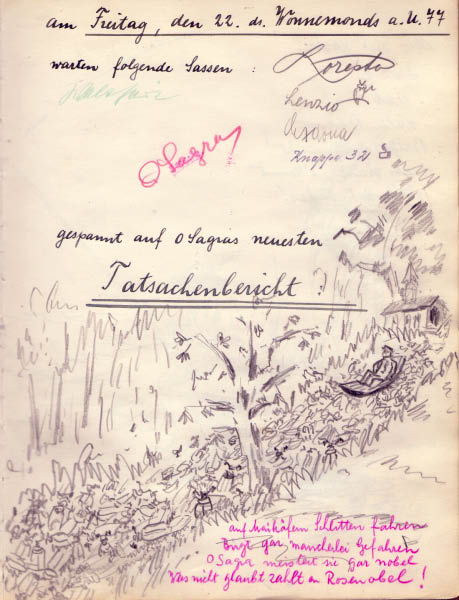 am Freitag, den 22. ds. Wonnemonds a. U. 77
warten folgende Sassen :
Loresto
Lenzio
Knappe 32
O Sagra
gespannt auf O Sagras neuesten
Tatsachenbericht !
auf Maikäfern Schlitten fahren
Birgt gar mancherlei Gefahren
O Sagra meistert sie gar nobel
Was nicht glaubt zahlt en Rosenobel !